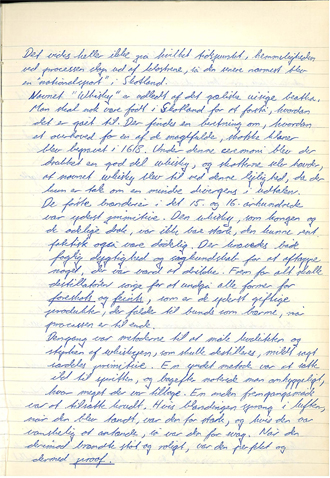 Det vides heller ikke på hvilket tidspunkt, hemmeligheden
ved processen slap ud af klostrene, og den snart nærmest blev
en "nationalsport" i Skotland.
Navnet "Whisky" er udledt af det gæliske uisige beatha.
Man skal nok være født i Skotland for at forstå, hvordan
det er gået til. Der findes en beretning om, hvordan
et overhoved for en af de magtfulde, skotske klaner
blev begravet i 1618. Under denne ceremoni blev der
drukket en god del whisky, og skotterne selv hævder,
at navnet whisky blev til ved denne lejlighed, da der
kun er tale om en mindre divergens i udtalen.
De første brænderier i det 15. og 16. århundrede
var yderst primitive. Den whisky, som kongen og
de adelige drak, var ikke bare stærk, den kunne rent
faktisk også være dødelig. Der krævedes både
faglig dygtighed og sagkundskab for at aftappe
noget, der var værd at drikke. Frem for alt skulle
destillatøren sørge for at undgå alle former for
foreshots og feints, som er de yderst giftige
produkter, der falder til bunds som bærme, når
processen er til ende.
Dengang var metoderne til at måle kvaliteten og
styrken af whiskyen, som skulle destilleres, mildt sagt
særdeles primitive. En yndet metode var at sætte
ild til spritten, og bagefter noterede man omhyggeligt,
hvor meget der var tilbage. En anden fremgangsmåde
var at tilsætte krudt. Hvis blandingen sprang i luften,
når den blev tændt, var den for stærk, og hvis den var
vanskelig at antænde, så var den for svag. Når den
derimod brændte støt og roligt, var den perfekt og
dermed proof.